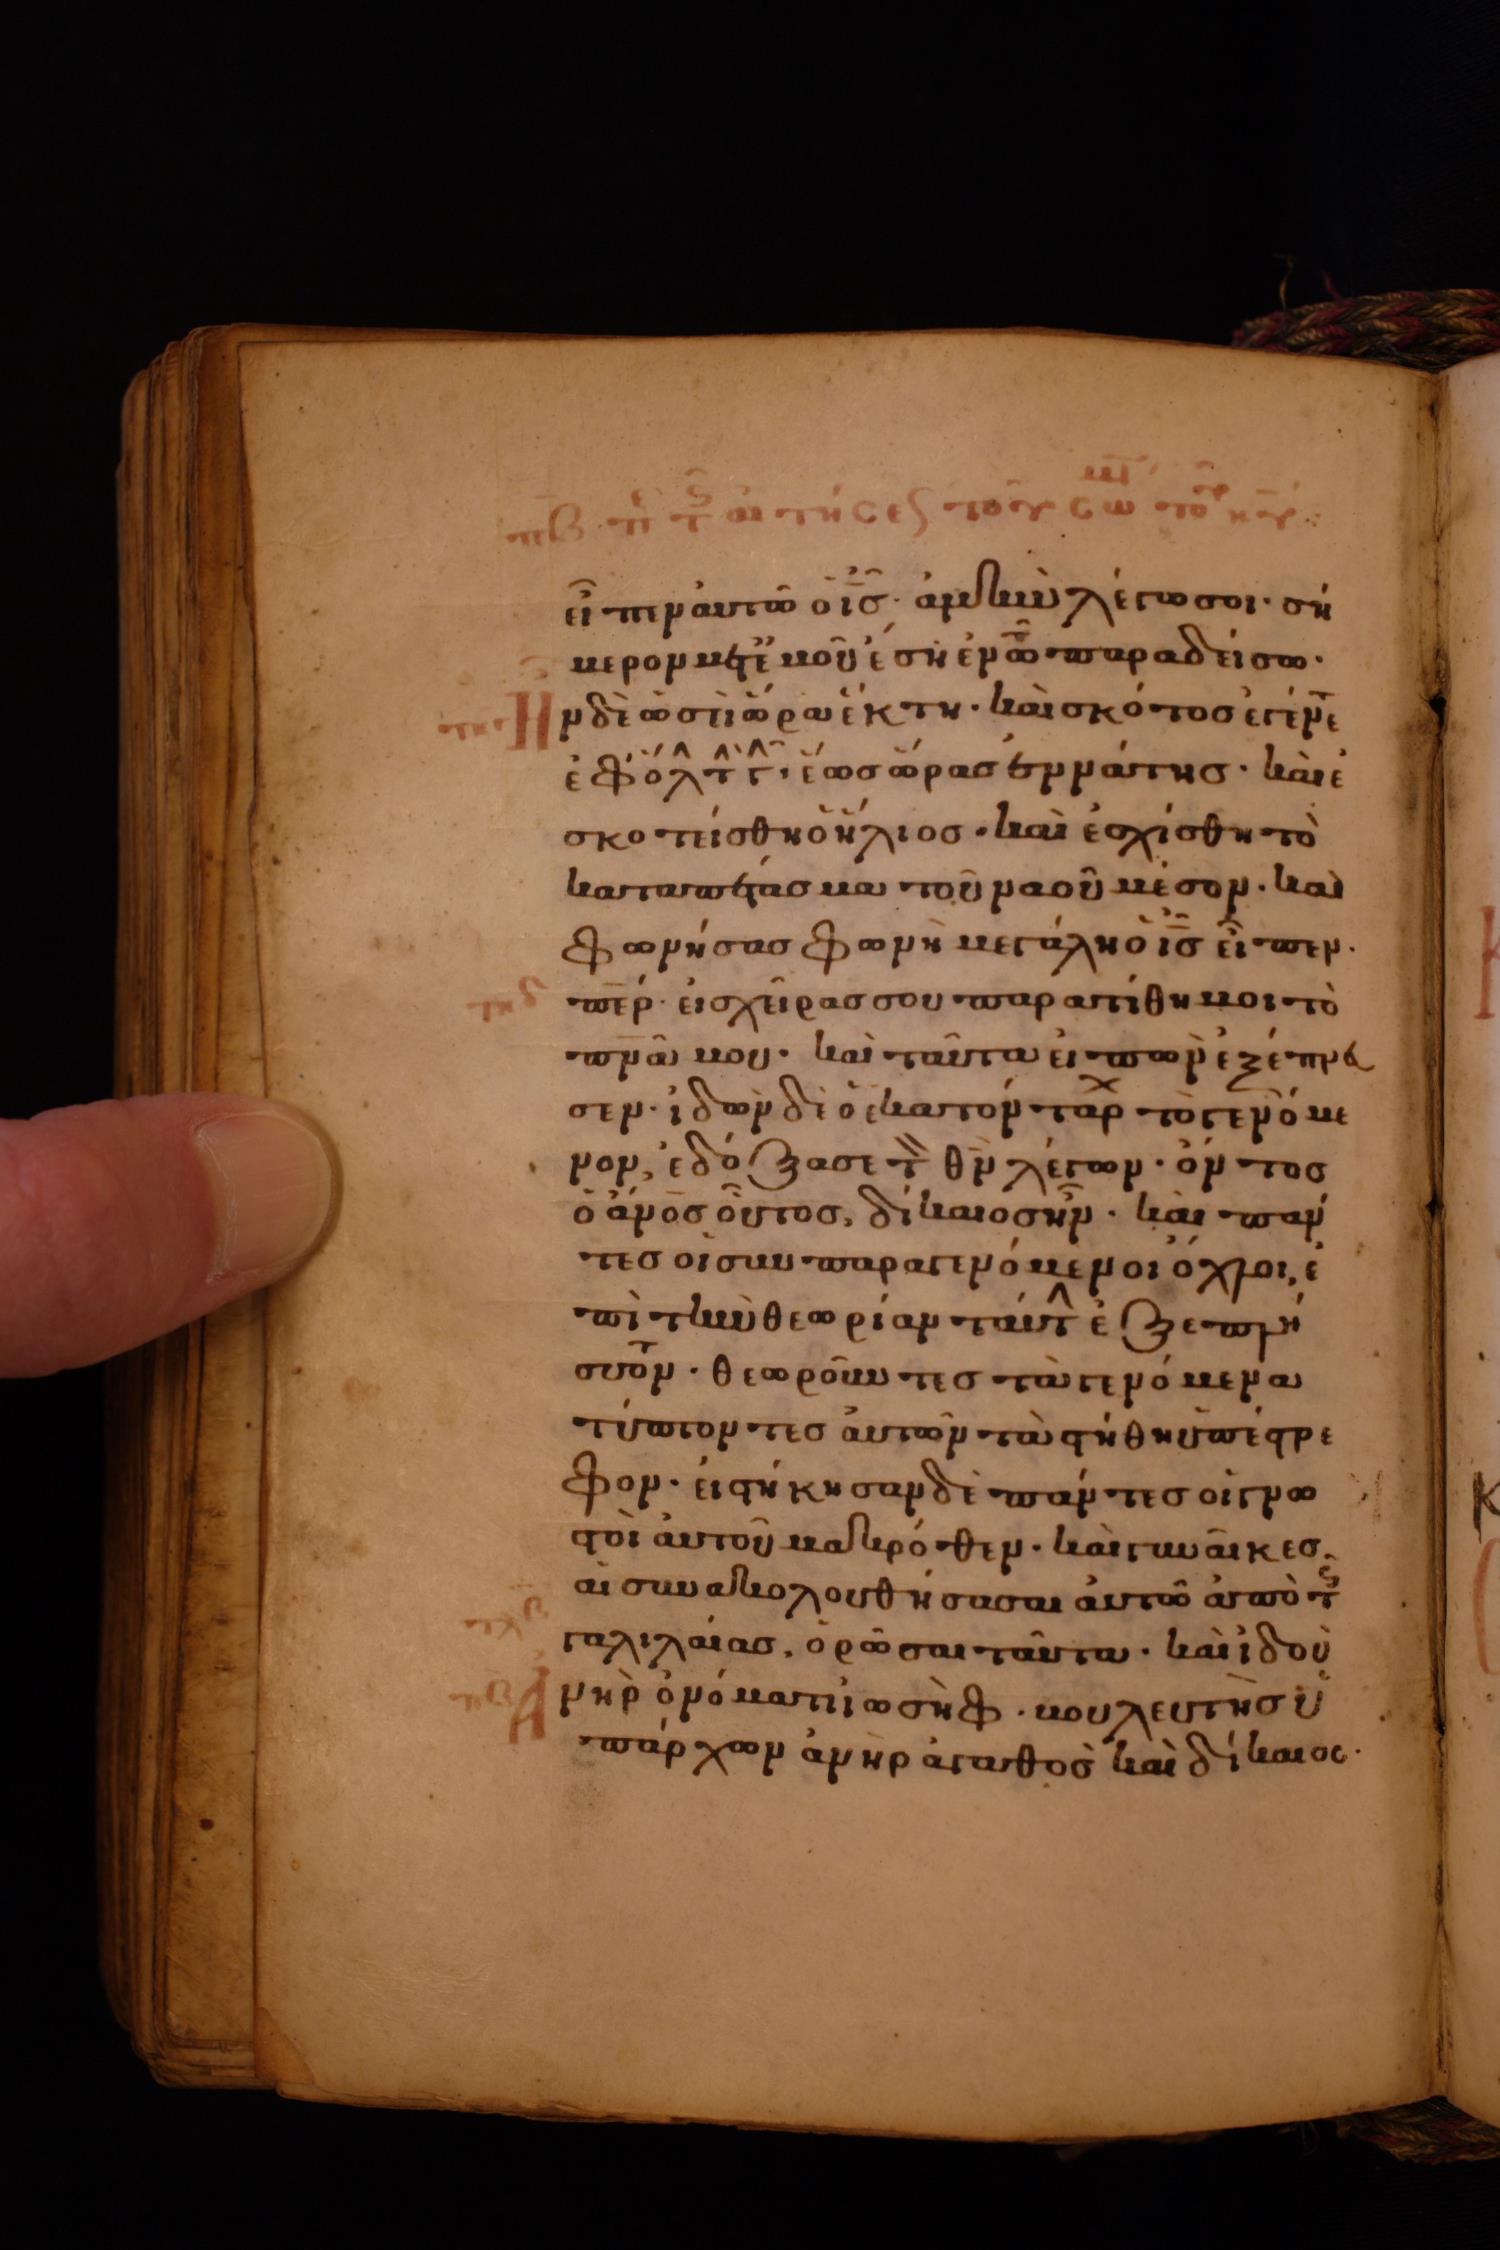 πβ π τ αιτήσε τοῦ σω το κυ
εἶπεν αὐτῶ ὁ ις· ἀμὴν λέγω σοι· σή
μερον μετ' ἐμοῦ ἔση ἐν τῶ παραδείσω·
Ην δὲ ὡσεὶ ὥρα ἕκτη· καὶ σκότος ἐγένε
ἐφ ὅλ τ γ, ἕως ὥρασ ἐννάτησ· καὶ ἐ
σκοτείσθη ὁ ἥλιοσ· καὶ ἐσχίσθη τὸ
καταπέτασμα τοῦ ναοῦ μέσον· καὶ
φωνήσασ φωνὴ μεγάλη ὁ ισ εἶπεν·
περ· εἰσ χεῖρασ σου παρατίθημοι τὸ
πνα μου· καὶ ταῦτα εἰπὼν ἐξέπνευ
σεν· ἰδὼν δὲ ὁ ἑκατόνταρχ τὸ γενόμε
νον, ἐδόξασε τ θν λέγων· ὄντοσ
ὁ ἀνοσ οὗτοσ, δίκαιοσ ἦν· καὶ πάν
τεσ οἱ συμπαραγενόμενοι ὄχλοι, ἐ
πὶ τὴν θεωρίαν ταύτ ἐξεπλή
σοντ· θεωροῦντεσ τὰ γενόμενα
τύπτοντεσ αὐτῶν τὰ στήθη ὑπέστρε
φον· εἱστήκησαν δὲ πάντεσ οἱ γνω
στοὶ αὐτοῦ μακρόθεν· καὶ γυναῖκεσ,
αἱ συνακολουθήσασαι αὐτῶ ἀπὸ τ
γαλιλαίασ, ὁρῶσαι ταῦτα· καὶ ἰδοὺ
Ἀνὴρ ὀνόματι ἰωσὴφ· βουλευτὴσ ὑ
πάρχων ἀνὴρ ἀγαθὸσ καὶ δίκαιοσ·